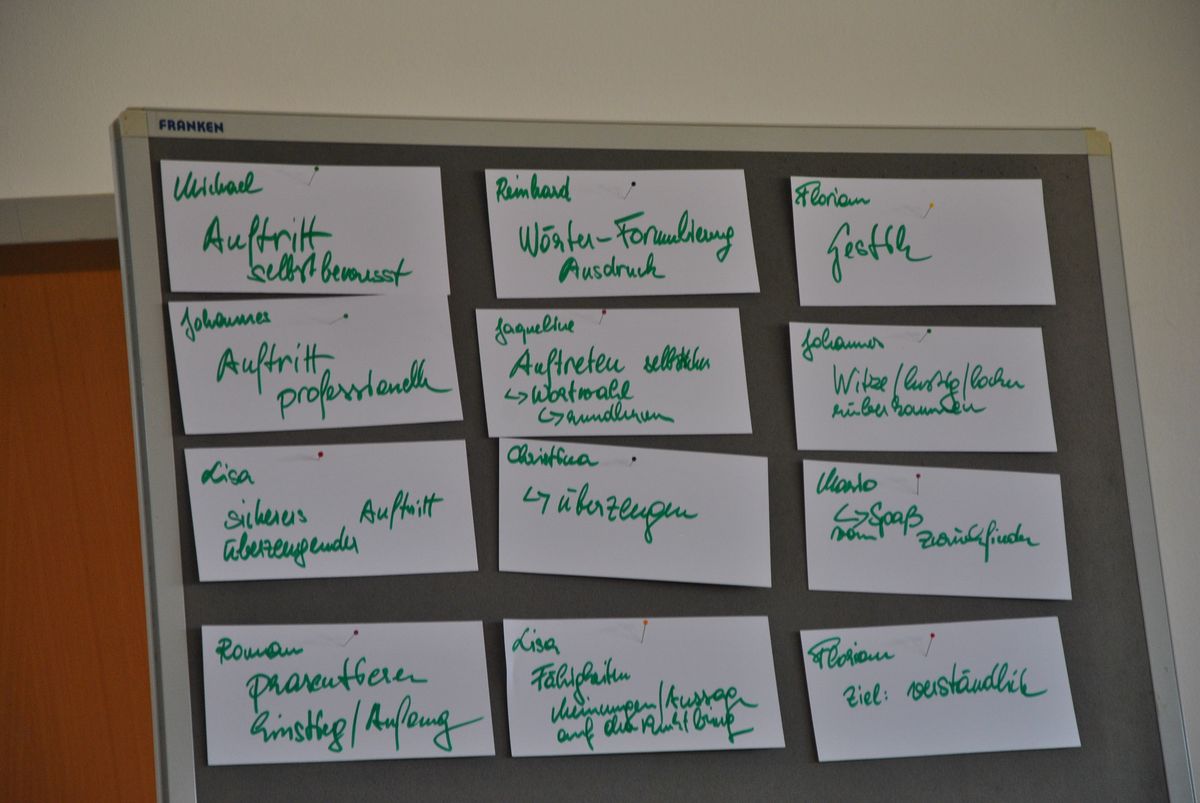 FRANKEN
Michael
Auftritt
selbstbewusst
Reinhard
Wörter-Formulierung
Ausdruck
Florian
Gestik
Johannes
Auftritt
professionell
Jaqueline
Auftreten
↳ Wortwahl
↳
Johannes
Witze/lustig/locker
rüber
Lisa
sicheres Auftritt
überzeugender
Christina
↳ überzeugen
Mario
↳ Spaß
vom zurückfinden
Roman
präsentieren
Einstieg/Anfang
Lisa
Fähigkeiten
Meinungen/Aussage
auf den
Florian
Ziel: verständlich